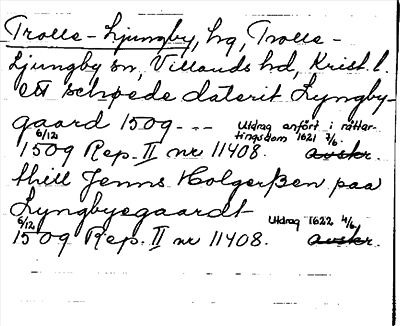 Trolle-Ljungby, hg, Trolle-
Ljungby sn, Villands hd, Krist. l.
ett schøede daterit Lyngby-
gaard 1509--- Utdrag anfört i rättar-
tingsdom 1621 7/6.
6/12 1509 Rep. II nr 11408. avskr.
thill Jenns Holgerßen paa
Lyngbyegaardt
6/12 1509 Rep. II nr 11408. Utdrag 1622 4/6 avskr.